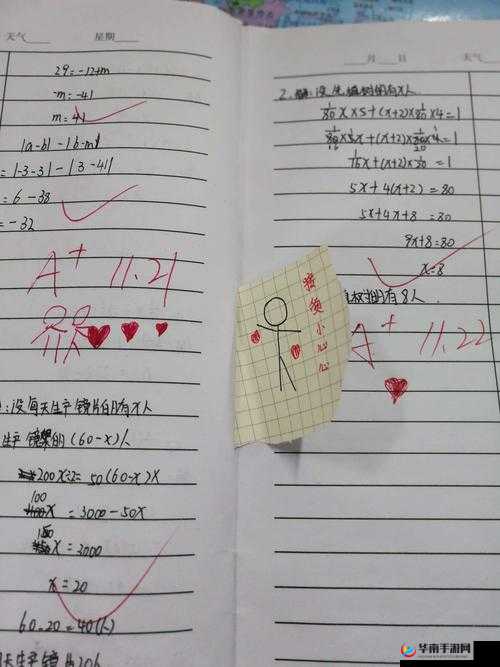 天气 星期
29=-12+m
-m=-41
m=41
|a-b|-|b-m|
=|-3-3|-|3-41|
=6-38
=-32
A+ 11.21
:设每天生产镜片的有x人
生产镜架的(60-x)人
200x÷2=50(60-x)
100x=3000-50x
150x=3000
x=20
60-20=40(人)
月 日 天气
2.解:设先植树的有x人
1/80 x×5+(x+2)×1/80×4=1
1/80×5x+(x+2)×1/80×4=1
10
20
1/16x+(x+2)×1/20=1
5x+4(x+2)=80
5x+4x+8=80
9x+8=80
x=8
植树的有8人.
A+ 11.22
奖
小心心
华南手游网